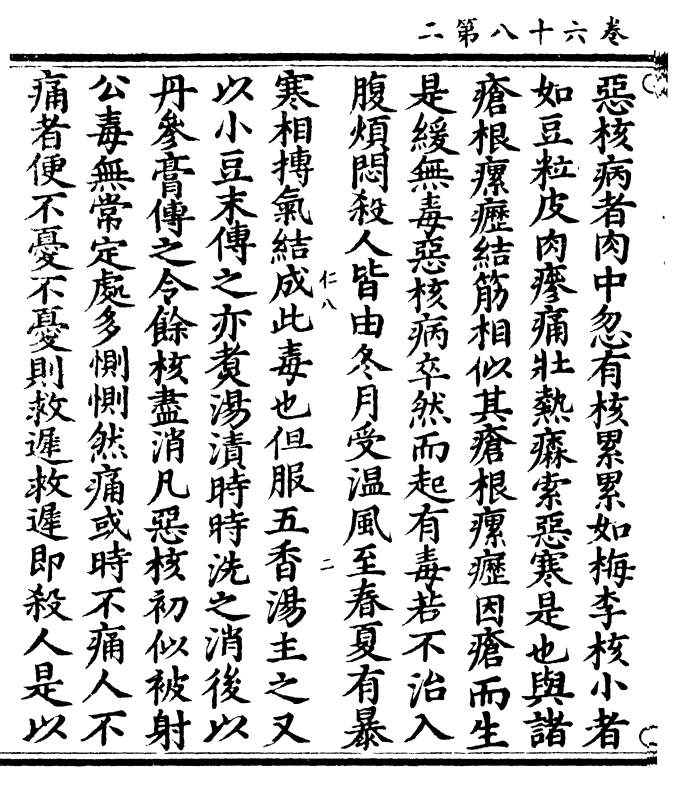 卷六十八第二
惡核病者肉中忽有核累累如梅李核小者
如豆粒皮肉瘮痛壯熱㾕索惡寒是也與諸
瘡根瘰癧結筋相似其瘡根瘰癧因瘡而生
是緩無毒惡核病卒然而起有毒若不治入
腹煩悶殺人皆由冬月受温風至春夏有暴
仁八
二
寒相摶氣結成此毒也但服五香湯主之又
以小豆末傅之亦煑湯漬時時洗之消後以
丹參膏傅之令餘核盡消凡惡核初似被射
公毒無常定處多惻惻然痛或時不痛人不
痛者便不憂不憂則救遲救遲即殺人是以